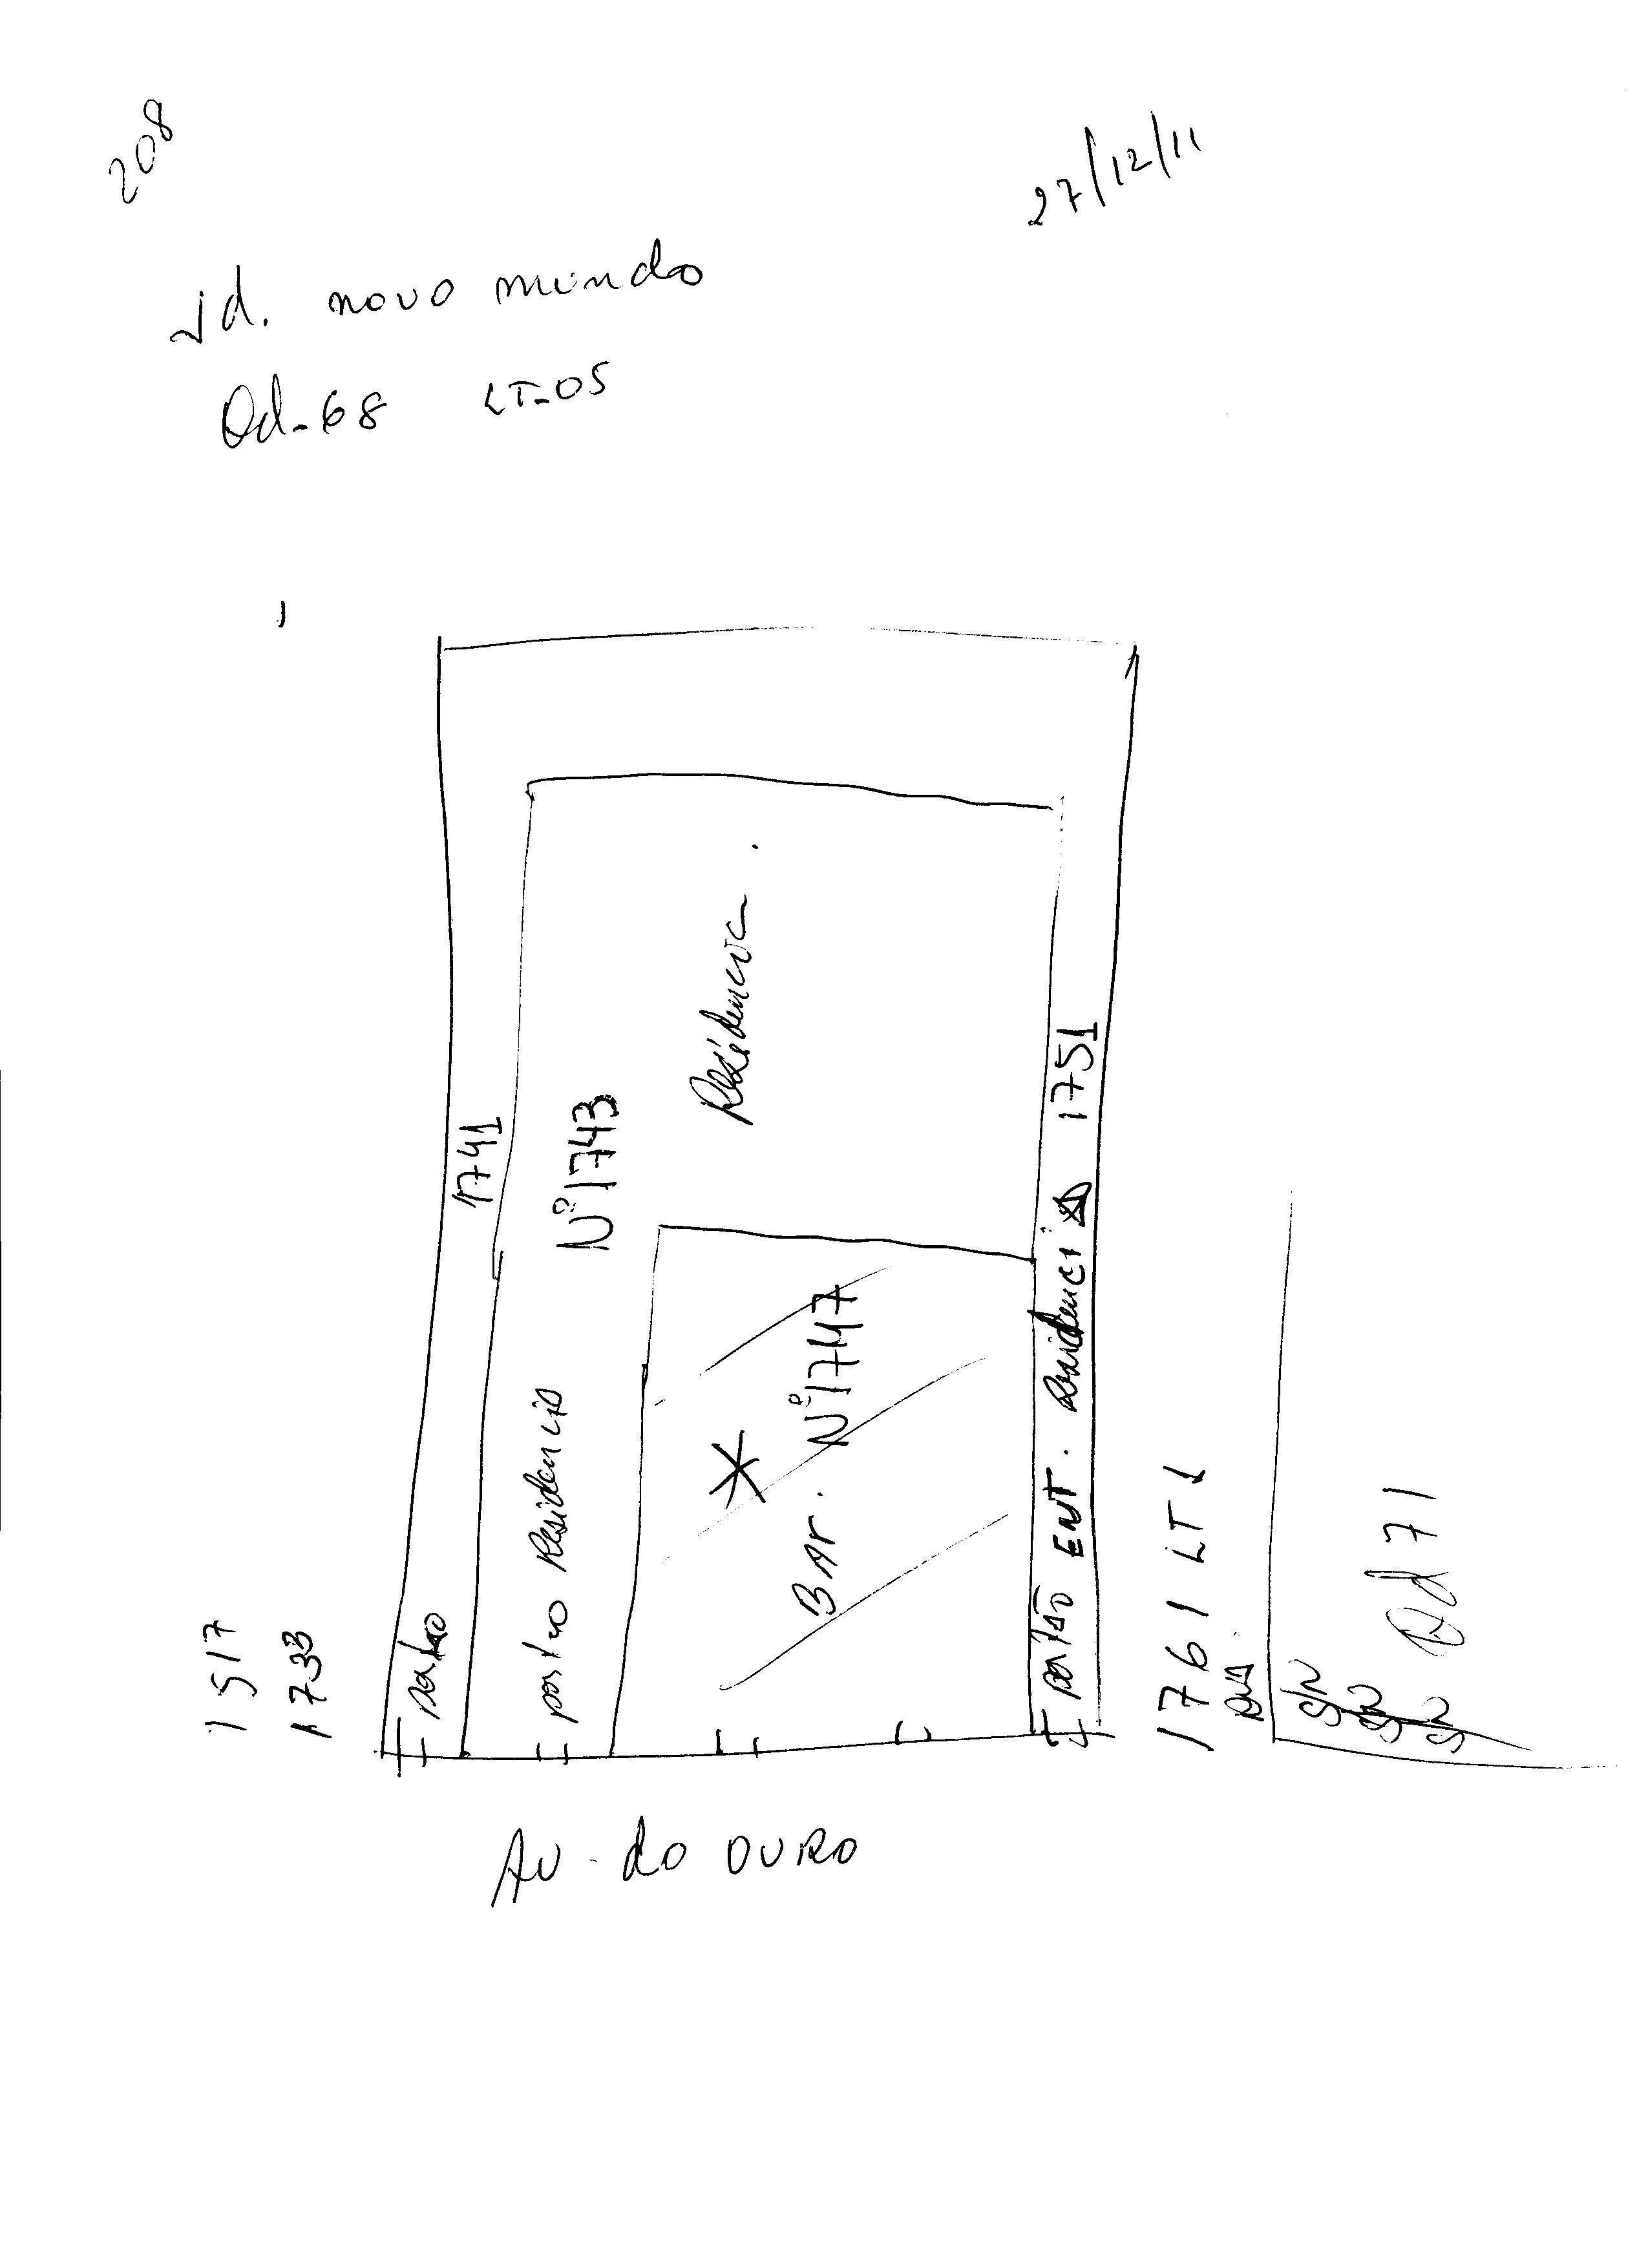 208
27/12/11
Jd. novo mundo
Qd-68 LT-05
1741
Nº 1743
Residencia.
portão
portão Residencia
Bar. Nº 1747
portão ENT. Residencia 1751
1517
1733
1761 LT 1
S/N
S/N
S/N
Qd 71
AV. do OURO